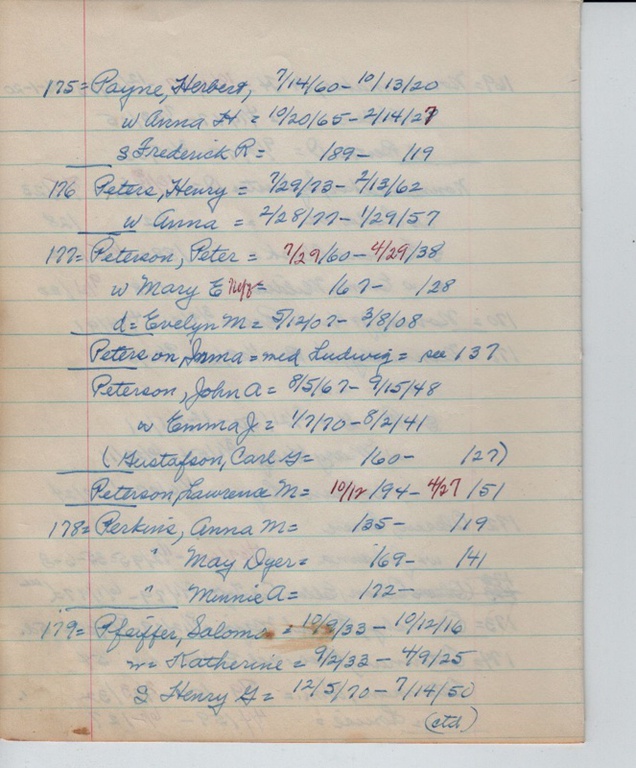 175= Payne, Herbert, 7/14/60 - 10/13/20
w Anna H = 10/20/65 - 2/14/27
S Frederick R = /89 - /19
176 Peters, Henry = 7/29/73 - 2/13/62
w Anna = 2/28/77 - 1/29/57
177= Peterson, Peter = 7/29/60 - 4/29/38
w Mary E = /67 - /28
d = Evelyn M = 5/12/07 - 3/8/08
Peterson, Inma = med Ludwig = see 137
Peterson, John A = 8/5/67 - 9/15/48
w Emma J = 1/7/70 - 8/2/41
(Gustafson, Carl G = /60 - /27)
Peterson, Lawrence M = 10/12/94 - 4/27/51
178= Perkins, Anna M = /35 - /19
" May Dyer = /69 - /41
" Minnie A = /72 -
179= Pfeiffer, Salome = 10/9/33 - 10/12/16
w = Katherine = 9/2/33 - 4/9/25
S Henry G = 12/5/70 - 7/14/50
(ctd)